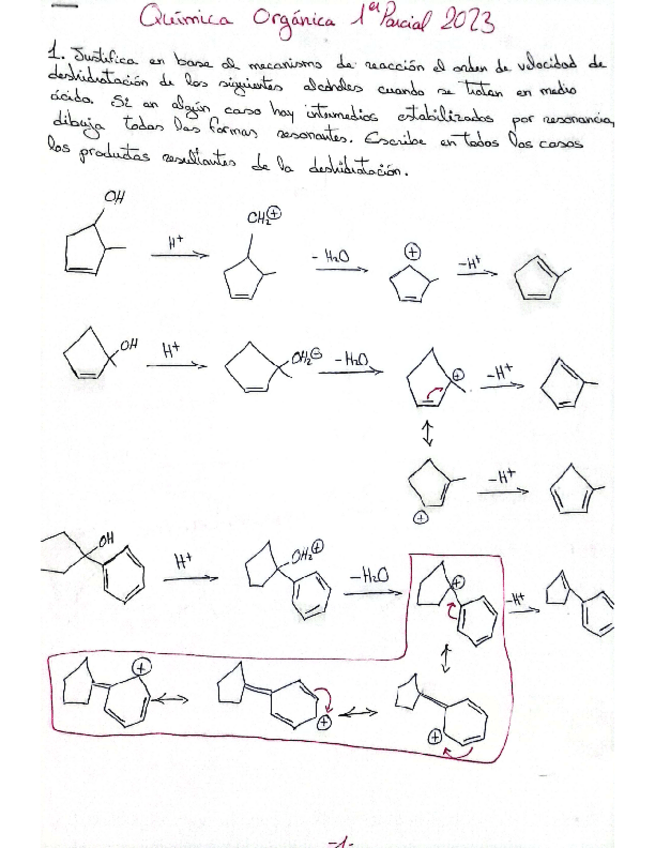 Química Orgánica 1er Parcial 2023
1. Justifica en base al mecanismo de reacción el orden de velocidad de
deshidratación de los siguientes alcoholes cuando se tratan en medio
ácido. Si en algún caso hay intermedios estabilizados por resonancia,
dibuja todas las formas resonantes. Escribe en todos los casos
los productos resultantes de la deshidratación.
OH H+ CH2⊕ - H2O ⊕ -H+
OH H+ OH2⊖ -H2O ⊕ -H+
⊕ -H+
OH H+ OH2⊕ -H2O ⊕ -H+
⊕ ⊕ ⊕
-1-